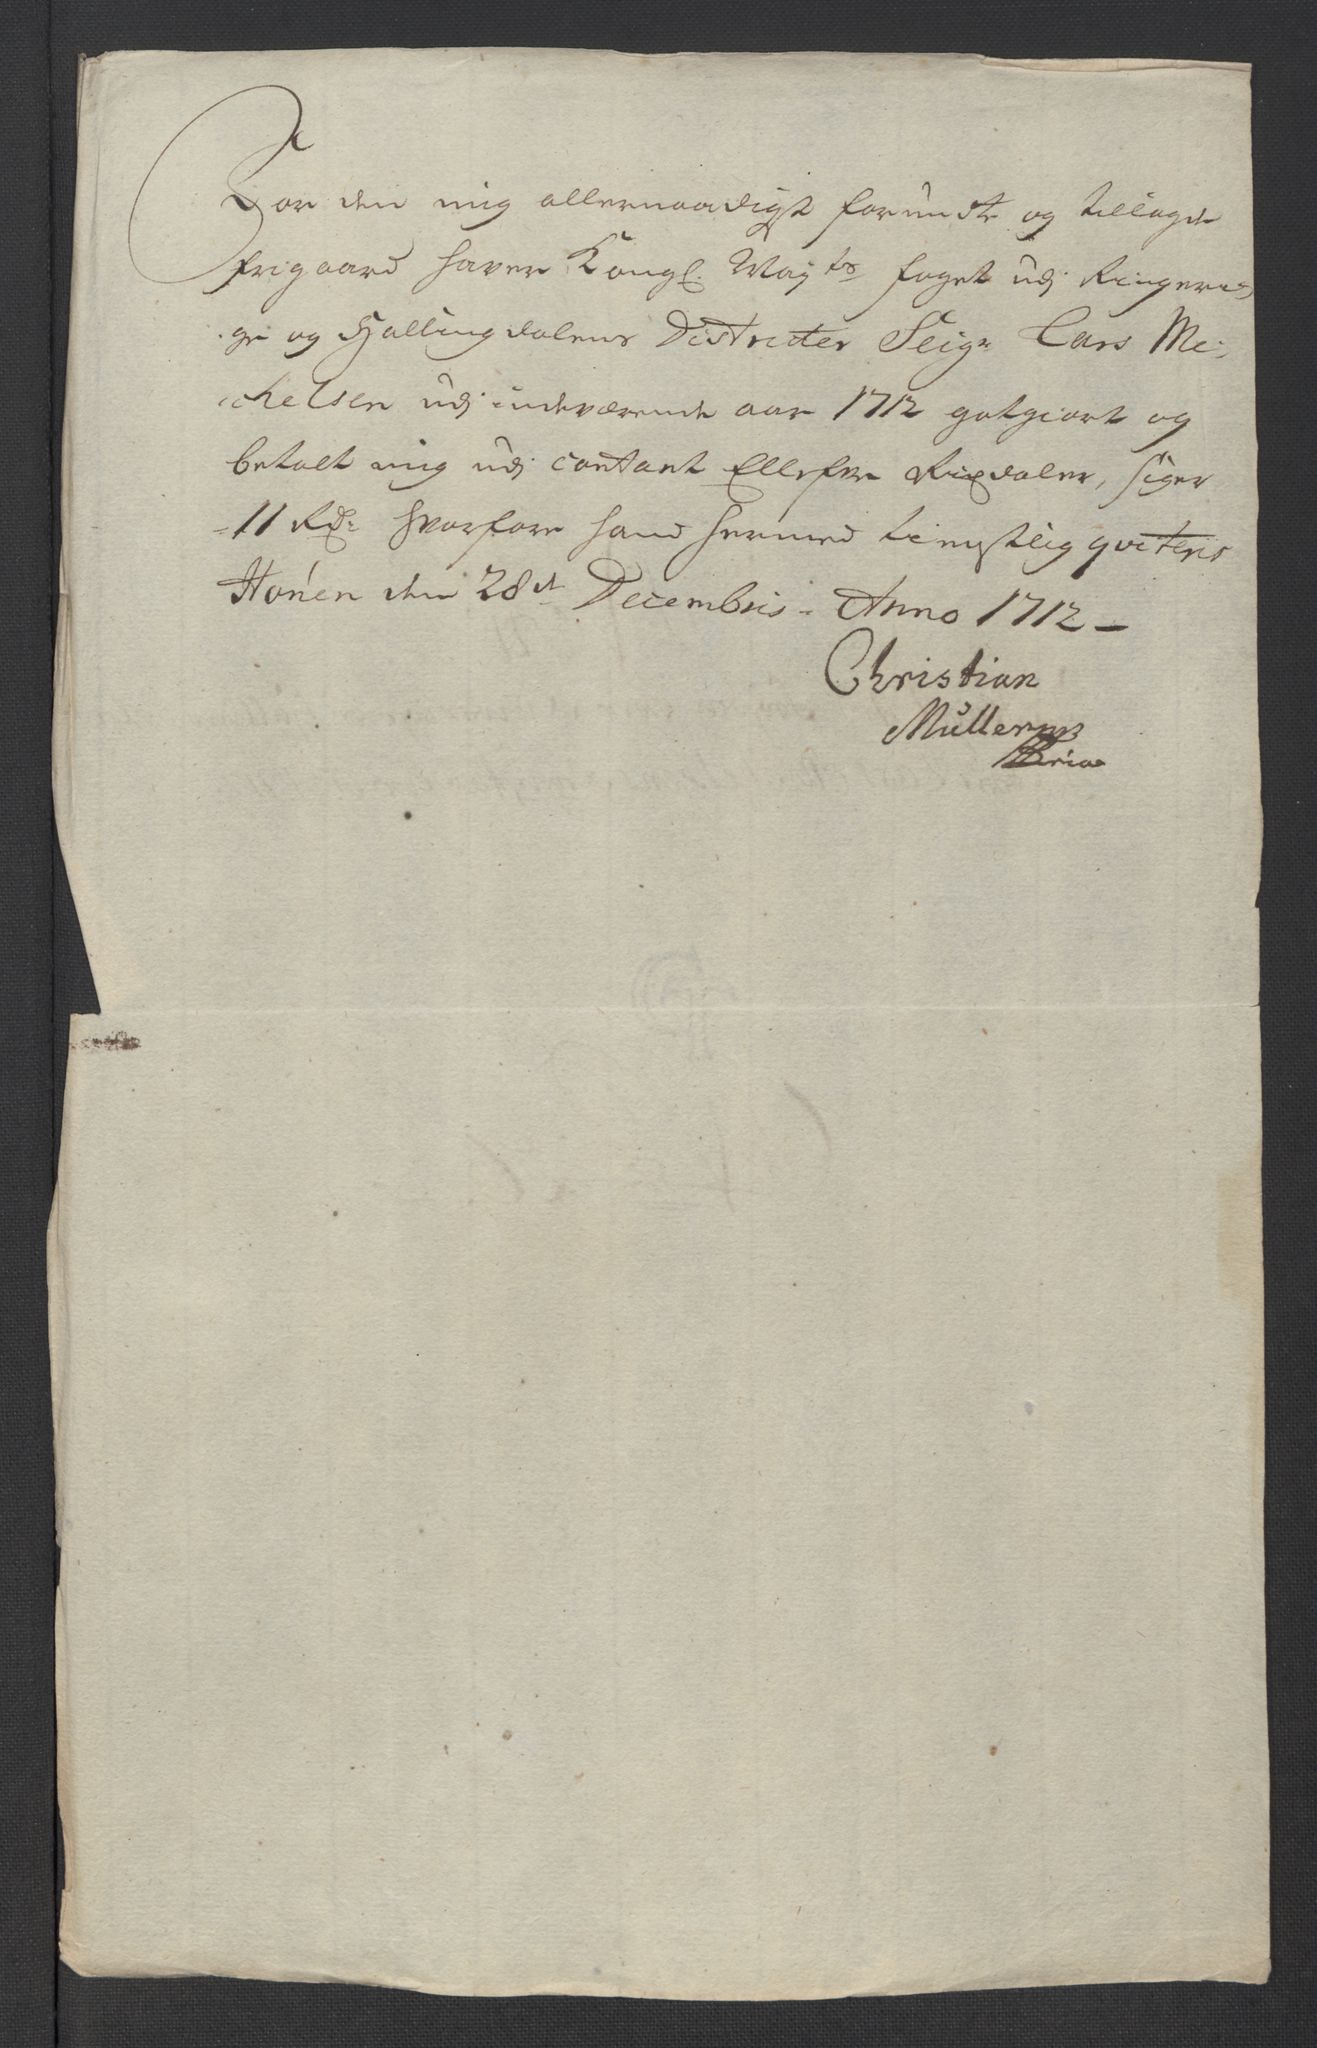 For den mig allernaadigst forundte og tillagde
frigaard haver Kongl. May.ts foget udj Ringeri-
ge og Hallingdalens Districter Seigr. Lars Mi-
chelsen udj indeværende aar 1712 gotgiort og
betalt mig udj contant Ellefve Rixdaler, siger
11 Rd: hvorfore hand hermed tienstlig qviteris
Honen den 28de Decembris. Anno 1712
Christian
Müller